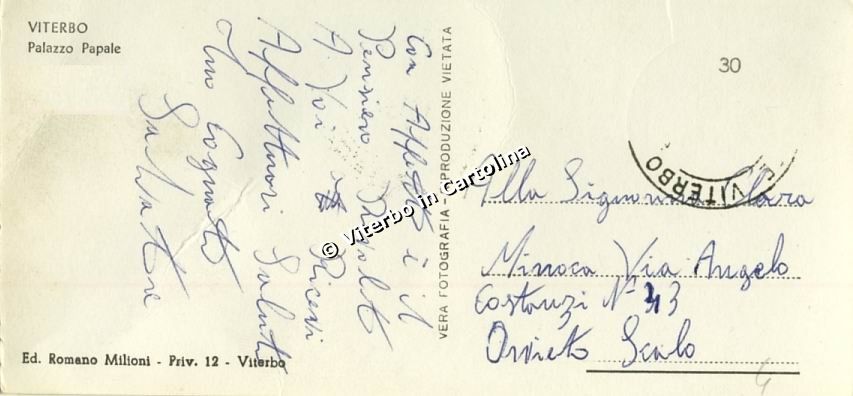 VITERBO
Palazzo Papale
Con Affetto è il
Pensiero Rivolto
A Voi Ricevi
Affettuosi Saluti
Tuo Cognato
Salvatore
Ed. Romano Milioni - Priv. 12 - Viterbo
VERA FOTOGRAFIA RIPRODUZIONE VIETATA
© Viterbo in Cartolina
30
VITERBO
Alla Signorina Clara
Via Angelo
Costanzi N° 43
Orvieto Scalo